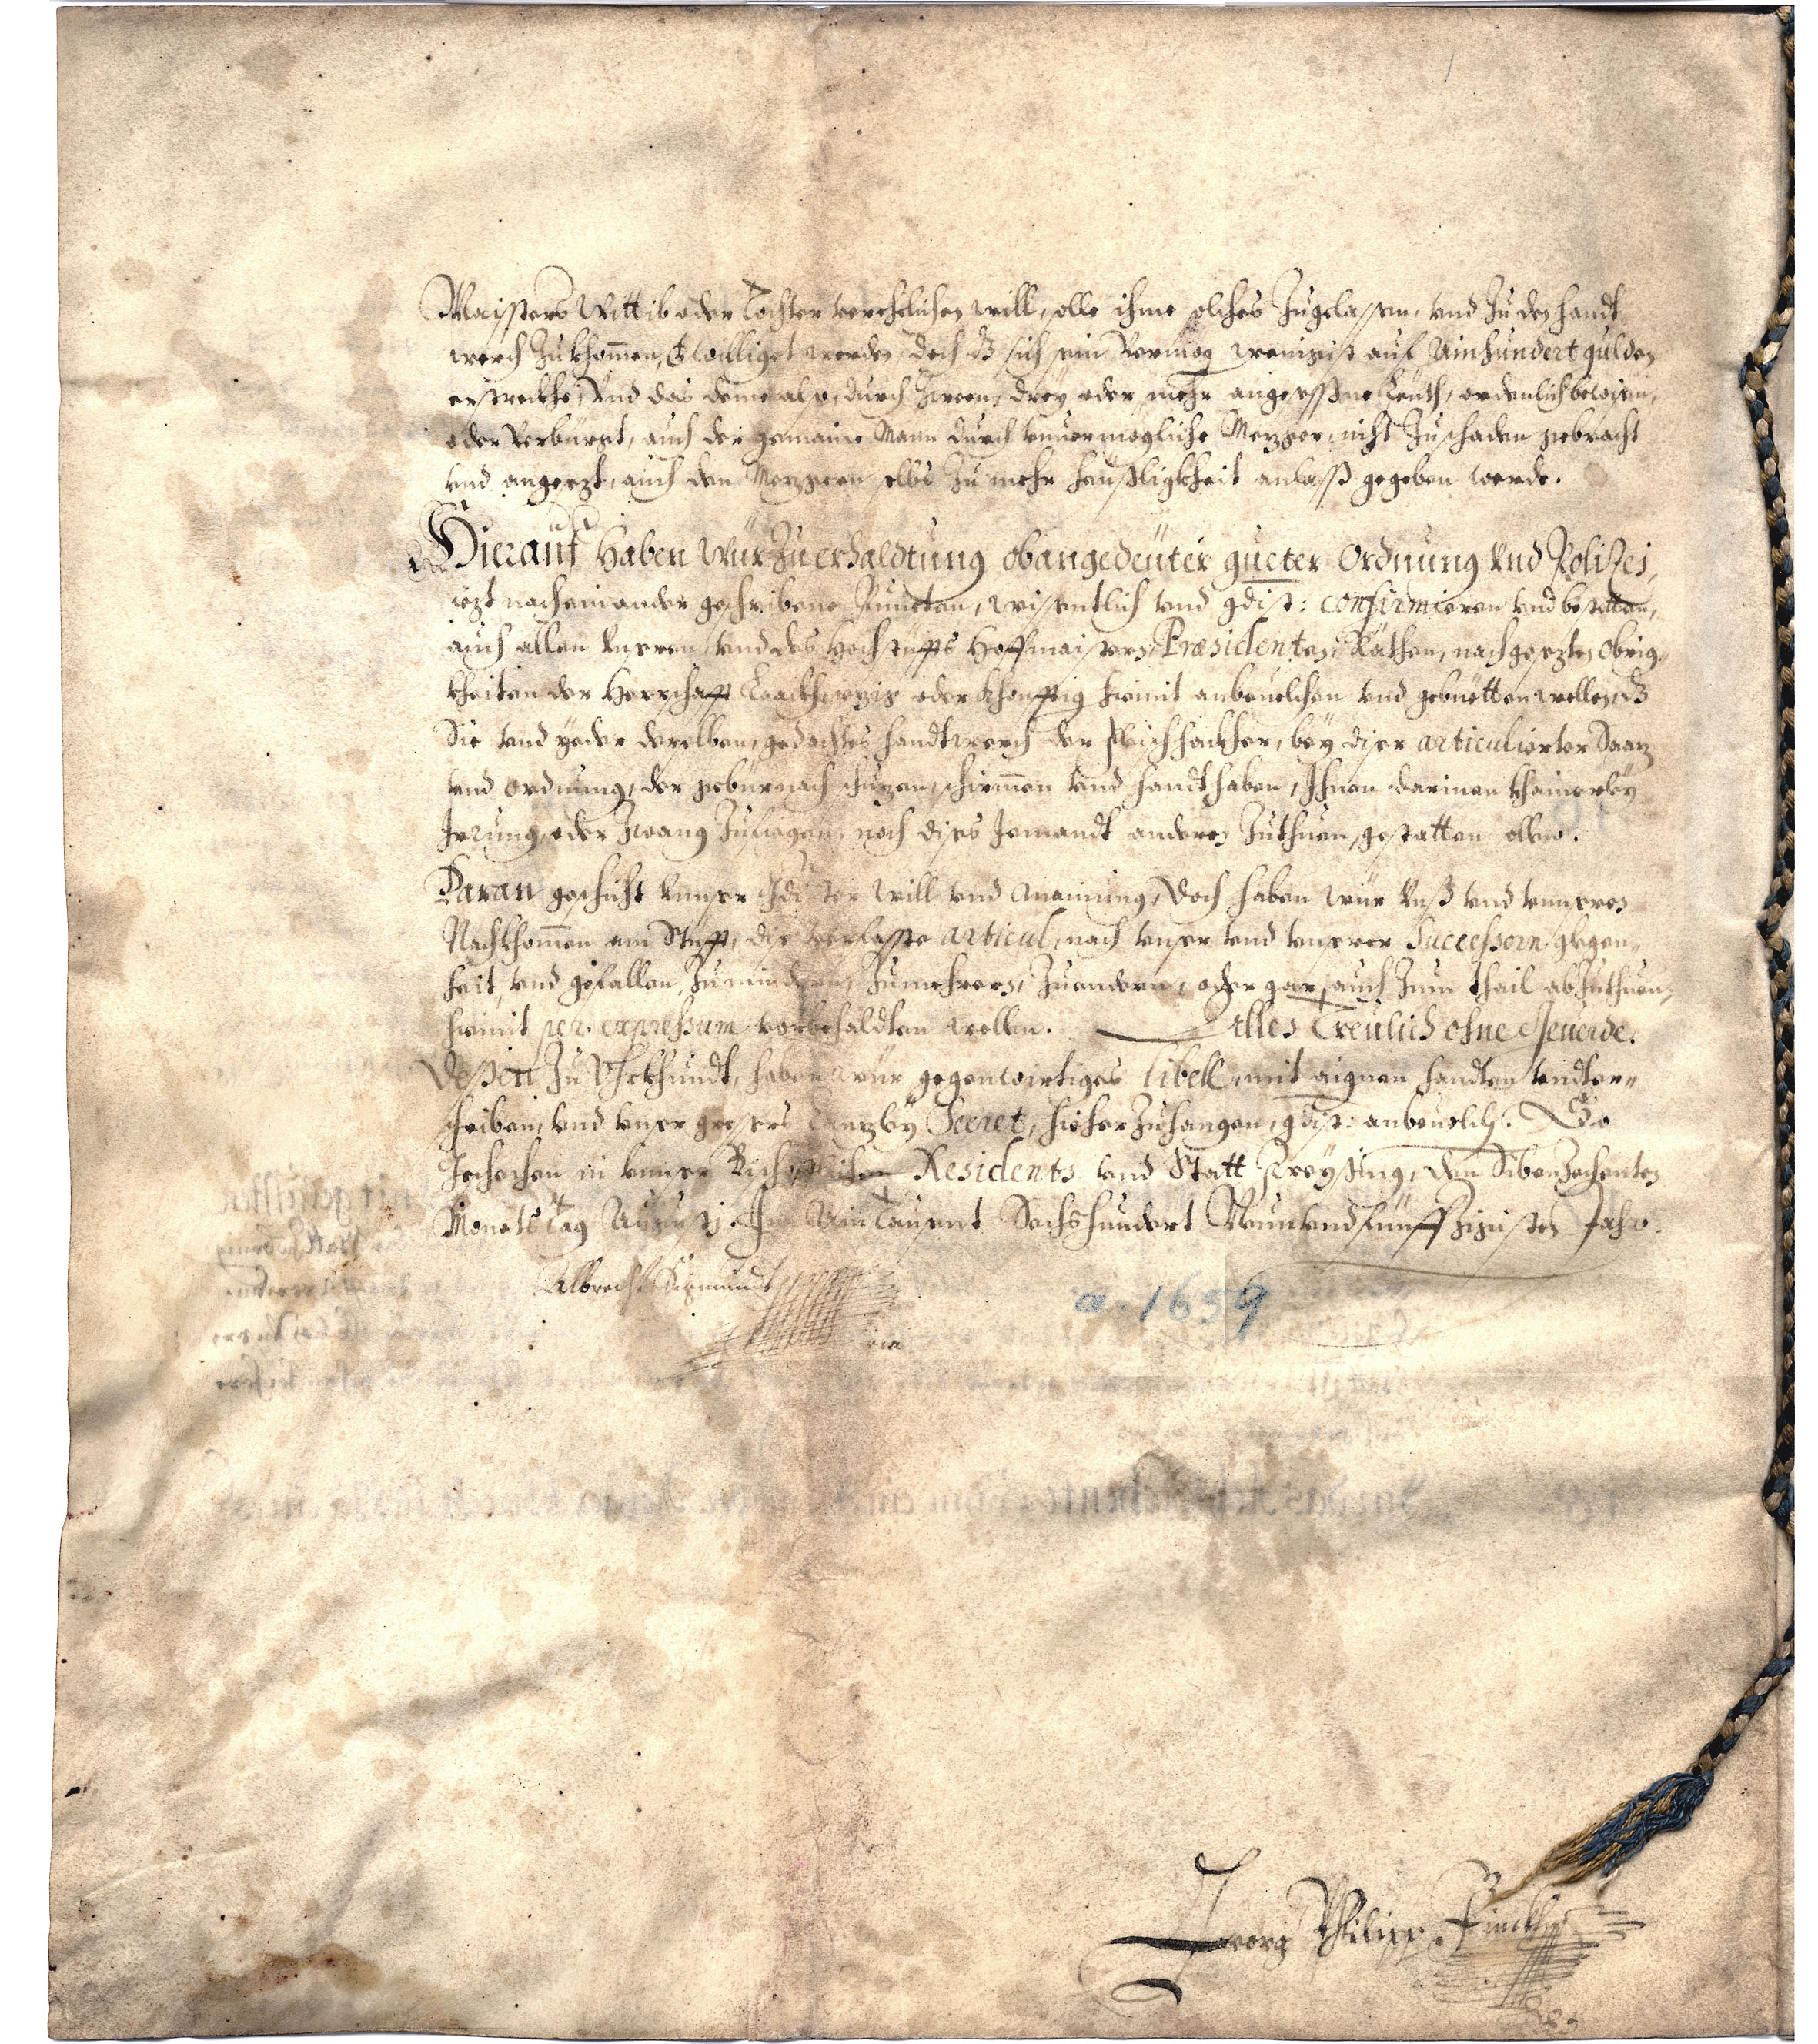 Maisters Wittib oder Tochter verehelichen will, solle ihme solches Zugelassen, vnd Zu den handt
werch Zukhommen, bewilliget werden, doch dz sich sein Vermög wenigist auf Ainhundert gulden
erstreckhe, Vnd das deme also, durch Zween, drey oder mehr angesessne Leüth, ordenlich bewisen,
oder Verbürgt, auch der gemaine Mann durch vnuermögliche Mezger, nicht Zuschaden gebracht
vnd angesezt, auch den Mezgern selbs Zu mehr heüßligkheit anlaß gegeben werde.
Hierauf Haben Wür Zu erhaldtung obangedeüter gueter Ordnung Vnd Polizei,
iezt nacheinander geschribene Puncten, wissentlich vnd gdist: confirmieren vnd bestetten,
auch allen Vnseren vnd des Hochstüffts Hoffmaistern, Præsidenten, Räthen, nachgesezten Obrig-
kheiten der Herrschafft iezig oder khonfftig hiemit anbeuelchen vnd gebietten wellen, dz
Sie vnd yeder derselben, gedachtes handtwerch der Fleischhackher, bey diser articulierter Saaz
vnd ordnung, der gebür nach schuzen, schirmen vnd handthaben, Ihnen darinen khainerley
Irrung, oder Zwang Zufiegen, noch dises Jemandt anderen Zuthuen, gestatten sollen.
Daran geschicht Vnnser gdister will vnd mainung, doch haben wür Vnß vnd vnnseren
Nachkhommen am Stüfft, dise verfasste articul, nach vnser vnd vnserer Successorn gelegen-
heit, vnd gefallen, Zumindern, Zumehren, Zuendern, oder gar, auch Zum thail abzuthuen,
hiemit per expressum vorbehaldten wellen. Alles Treulich ohne Geuerde.
Deßen Zu Vhrkhundt, haben wür gegenwirtiges libell, mit aignen handten vndter-
schriben, vnd vnser gressers Canzley Secret, hieher Zuhangen, gdist: anbeuolchen. So
Geschechen in vnnser Bischofflichen Residents vnd Statt Freysing, den Sibenzechenten
Monats Tag Augusti Im Ain Tausent Sechshundert Neun vnd fünffzigisten Jahr.
Albrecht Sigmundt
a. 1659
Georg Philipp Finckh